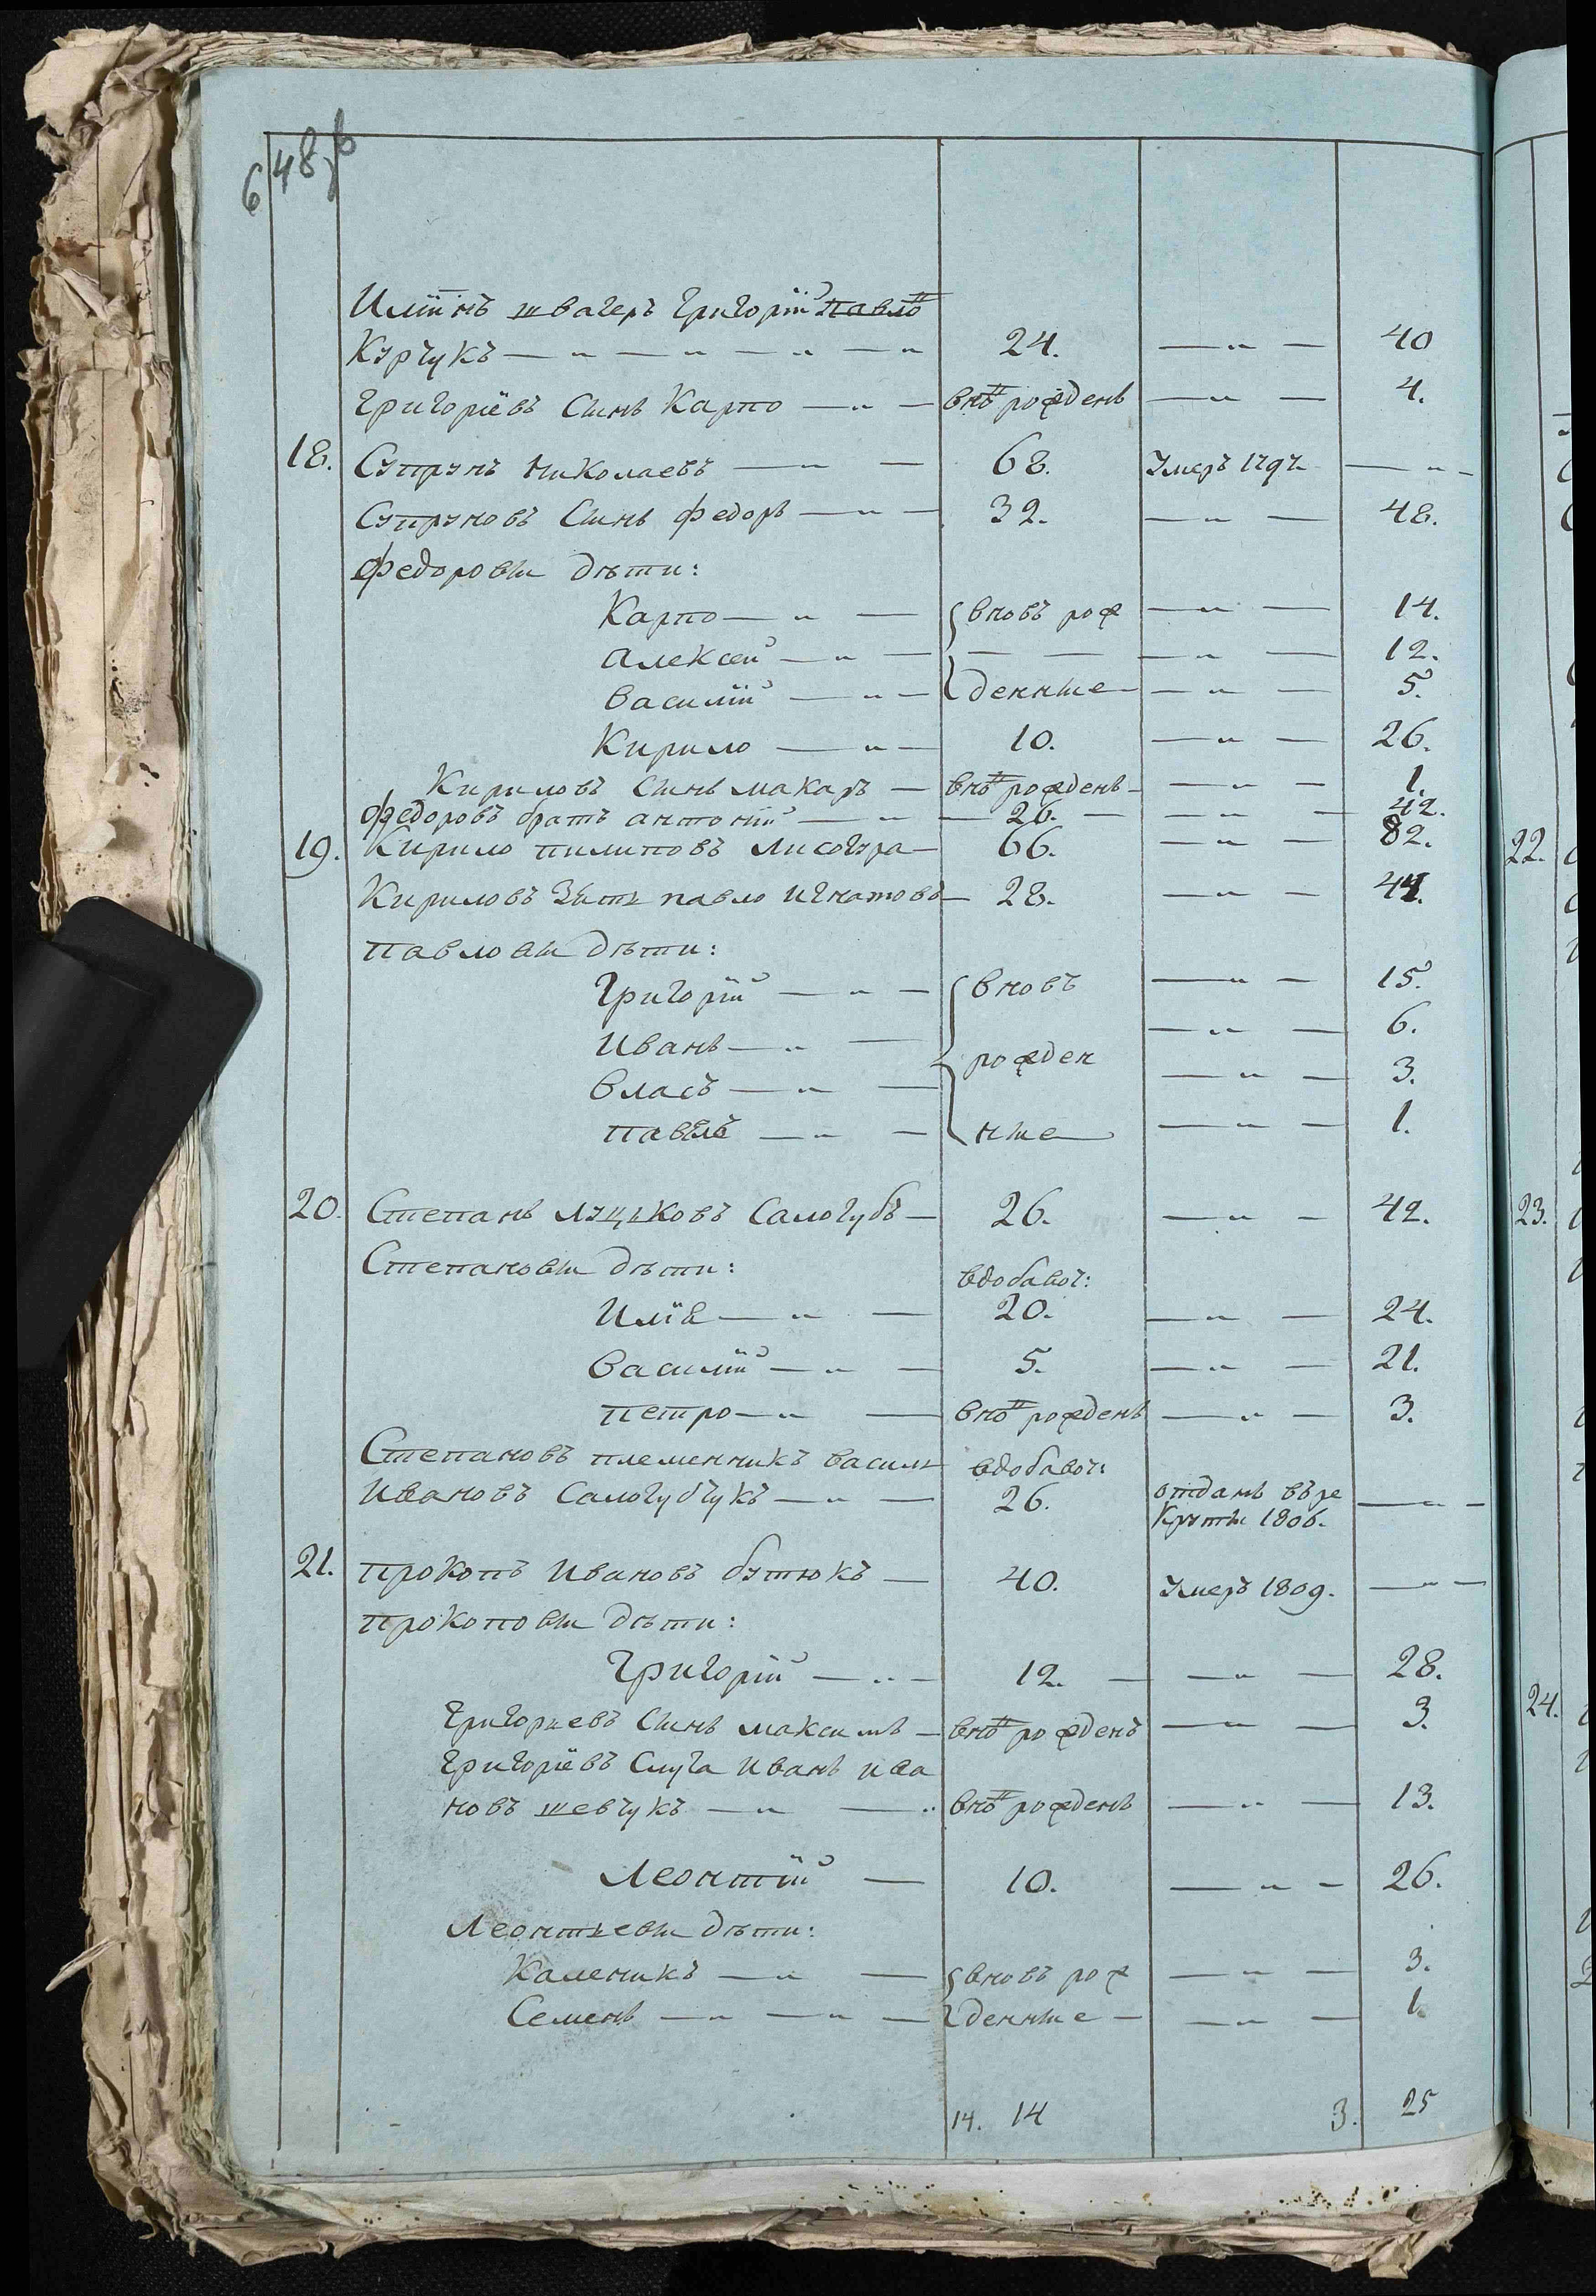 648,б
Иліинъ швагеръ Григорій Павлов
Курчукъ — „ — „ — „ — „ 24. — „ — 40
Григоріевъ Сынъ Карпо — „ — внов рожденъ — „ — 4.
18. Супрунъ Николаевъ — „ — 68. Умеръ 1797. — „ —
Супруновъ Сынъ Федоръ — „ — 32. — „ — 48.
Федоровы дѣти:
Карпо — „ — вновъ рож — „ — 14.
Алексей — „ — — — — „ — 12.
Василій — „ — денные — „ — 5.
Кирило — „ — 10. — „ — 26.
Кириловъ Сынъ Макаръ — внов рожденъ — „ — 1.
Федоровъ братъ Антоній — „ — 26. — „ — 42.
19. Кирило Пилиповъ Лисогура — 66. — „ — 82.
Кириловъ Зять Павло Игнатовъ — 28. — „ — 44.
Павловы дѣти:
Григорій — „ — вновъ — „ — 15.
Иванъ — „ — — „ — 6.
рожден
Власъ — „ — — „ — 3.
Павелъ — „ — ные — „ — 1.
20. Степанъ Луцыковъ Салогубъ — 26. — „ — 42.
Степановы дѣти: вдобавоч:
Илія — „ — 20. — „ — 24.
Василій — „ — 5. — „ — 21.
Петро — „ — внов рожденъ — „ — 3.
Степановъ племенникъ Василь вдобавоч:
Ивановъ Салогубчукъ — „ — 26. отданъ въ ре — „ —
круты 1806.
21. Прокопъ Ивановъ Бутюкъ — 40. Умеръ 1809. — „ —
Прокоповы дѣти:
Григорій — „ — 12. — — „ — 28.
Григориевъ Сынъ Максимъ — внов рожденъ — „ — 3.
Григоріевъ Слуга Иванъ Ива
новъ Шевчукъ — „ — „ внов рожденъ — „ — 13.
Леонтій — 10. — „ — 26.
Леонтьевы дѣти:
Каленикъ — „ — вновъ рож — „ — 3.
Семенъ — „ — „ — денные — — „ — 1.
14. 14 3. 25
22.
23.
24.